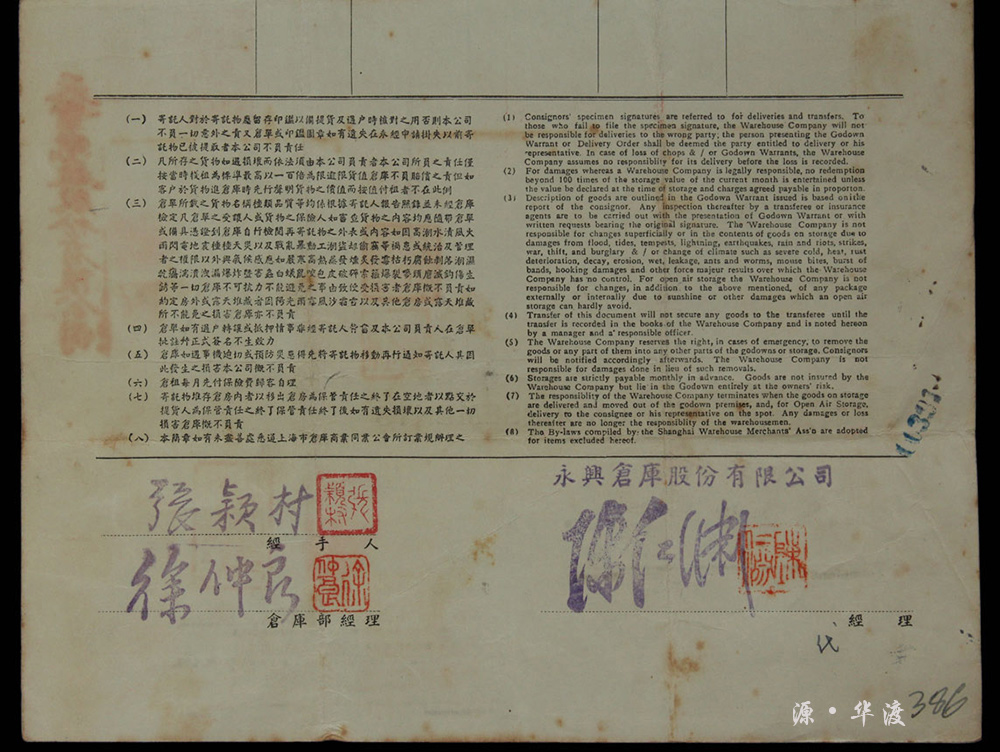 (一) 寄託人對於寄託物應留存印鑑以備提貨及過户時核對之用否則本公司
不負一切意外之責又倉單或印鑑圖章如有遺失在未經申請掛失以前寄
託物已被提取者本公司不負責任
(二) 凡所存之貨物如遇損壞而依法須由本公司負責者本公司所負之責任僅
按當時棧租為標準最高以一百倍為限逾限貨值倉庫不負賠償之責但如
客户於貨物進倉庫時先行聲明貨物之價值而按值付租者不在此例
(三) 倉單所載之貨物名稱種類品質等均係根據寄託人報告照錄並未經倉庫
檢定凡倉單之受讓人或貨物之保險人如需查貨物之內容均應隨帶倉單
(四) 倉單如有過户轉讓或抵押情事非經寄託人背書及本公司負責人在倉單
批註幷正式簽名不生效力
(五) 倉庫如遇事機迫切或預防災患得先將寄託物移動再行通知寄託人其因
此發生之損害本公司概不負責
(六) 倉租每月先付保險費歸客自理
(七) 寄託物堆存倉房內者以移出倉房為保管責任之終了在空地者以點交於
提貨人為保管責任之終了保管責任終了後如有遺失損壞以及其他一切
損害倉庫概不負責
(八) 本簡章如有未盡善處悉遵上海市倉庫商業同業公會所訂業規辦理之
(1) Consignors' specimen signatures are referred to for deliveries and transfers. To
those who fail to file the specimen signature, the Warehouse Company will not
be responsible for deliveries to the wrong party; the person presenting the Godown
Warrant or Delivery Order shall be deemed the party entitled to delivery or his
representative. In case of loss of chops & / or Godown Warrants, the Warehouse
Company assumes no responsiblity for its delivery before the loss is recorded.
(2) For damages whereas a Warehouse Company is legally responsible, no redemption
beyond 100 times of the storage value of the current month is entertained unless
the value be declared at the time of storage and charges agreed payable in proporton.
(3) Description of goods are outlined in the Godown Warrant issued is based on the
report of the consignor. Any inspection thereof by a transferee or insurance
agents are to be carried out with the presentation of Godown Warrant or with
written requests bearing the original signature. The Warehouse Company is not
responsible for changes superficially or in the contents of goods on storage due to
damages from flood, tides, tempests, lightning, earthquakes, rain and riots, strikes,
war, thift, and burglary & / or change of climate such as severe cold, heat, rust
deterioration, decay, erosion, wet, leakage, ants and worms, mouse bites, burst of
bands, hooking damages and other force majeur results over which the Warehouse
Company has no control. For open air storage the Warehouse Company is not
responsible for changes, in addition to the above mentioned, of any package
externally or internally due to sunshine or other damages which an open air
storage can hardly avoid.
(4) Transfer of this document will not secure any goods to the transferee until the
transfer is recorded in the books of the Warehouse Company and is noted hereon
by a manager and a responsible officer.
(5) The Warehouse Company reserves the right, in cases of emergency, to remove the
goods or any part of them into any other parts of the godowns or storage. Consignors
will be notified accordingly afterwards. The Warehouse Company is not
responsible for damages done in lieu of such removals.
(6) Storages are strictly payable monthly in advance. Goods are not insured by the
Warehouse Company but lie in the Godown entirely at the owners' risk.
(7) The responsiblity of the Warehouse Company terminates when the goods on storage
are delivered and moved out of the godown premises, and, for Open Air Storage,
delivery to the consignee or his representative on the spot. Any damages or loss
thereafter are no longer the responsiblity of the warehousemen.
(8) The By-laws compiled by the Shanghai Warehouse Merchants' Ass'n are adopted
for items excluded hereof.
張穎村
經手人
徐仲良
倉庫部經理
永興倉庫股份有限公司
經理
代
源·华渡
386